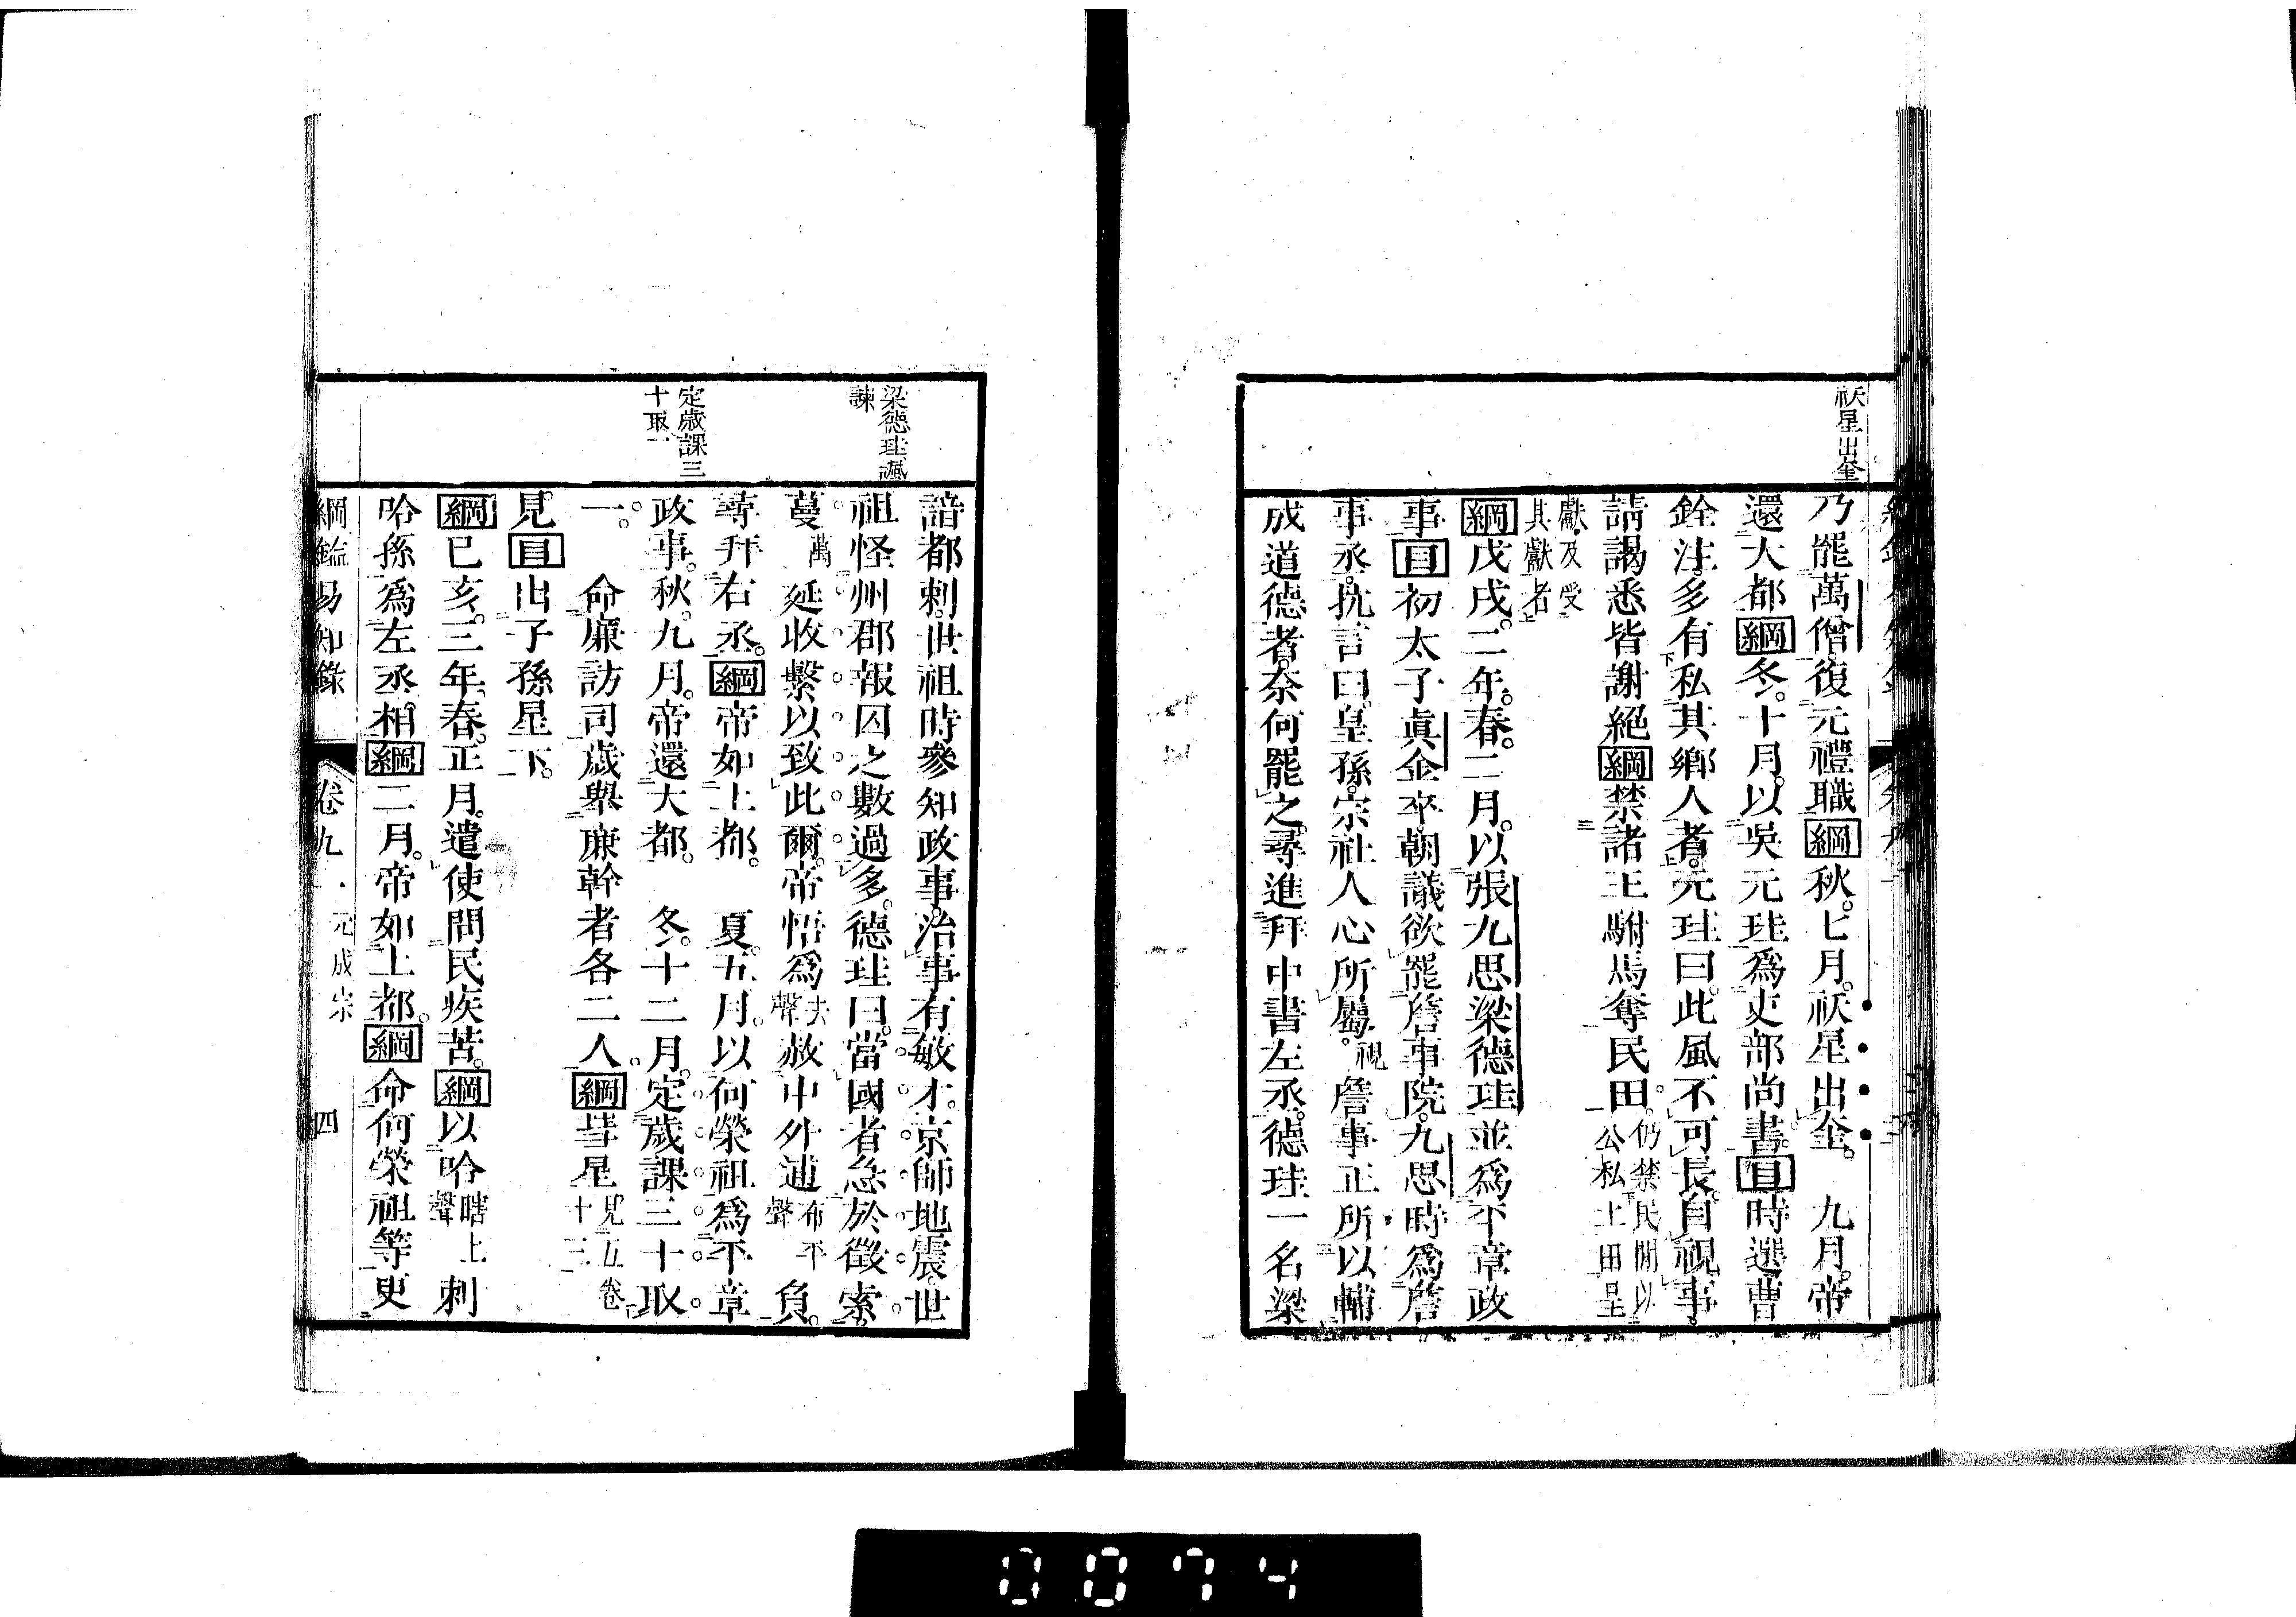 祅星出奎
乃罷萬僧。復元禮職綱秋。七月。祅星出奎。　九月。帝
還大都綱冬。十月。以吳元珪爲吏部尚書。目時選曹
銓注。多有私其鄉人者。元珪曰。此風不可長。自視事。
請謁悉皆謝絕綱禁諸王駙馬奪民田。仍禁民閒以公私土田呈
獻及受其獻者
綱戊戌。二年。春。二月。以張九思梁德珪並爲平章政
事目初太子眞金卒。朝議欲罷詹事院。九思時爲詹
事丞。抗言曰。皇孫。宗社人心所屬。視詹事正所以輔
成道德者。奈何罷之。尋進拜中書左丞。德珪一名梁
梁德珪諷
諫
定歲課三
十取一
諳都剌。世祖時參知政事。治事有敏才。京師地震。世
祖怪州郡報囚之數過多。德珪曰。當國者急於徵索。
蔓萬延收繫以致此爾。帝悟爲去聲赦中外逋布平聲負。
尋拜右丞。綱帝如上都。　夏。五月。以何榮祖爲平章
政事。秋。九月。帝還大都。　冬。十二月。定歲課三十取
一。　命廉訪司歲舉廉幹者各二人。綱彗星見五卷十三
見。目出子孫星下。
綱己亥。三年。春。正月。遣使問民疾苦。綱以哈瞎上聲剌
哈孫爲左丞相。綱二月。帝如上都。綱命何榮祖等更
綱鑑易知錄　卷九　元成宗　四